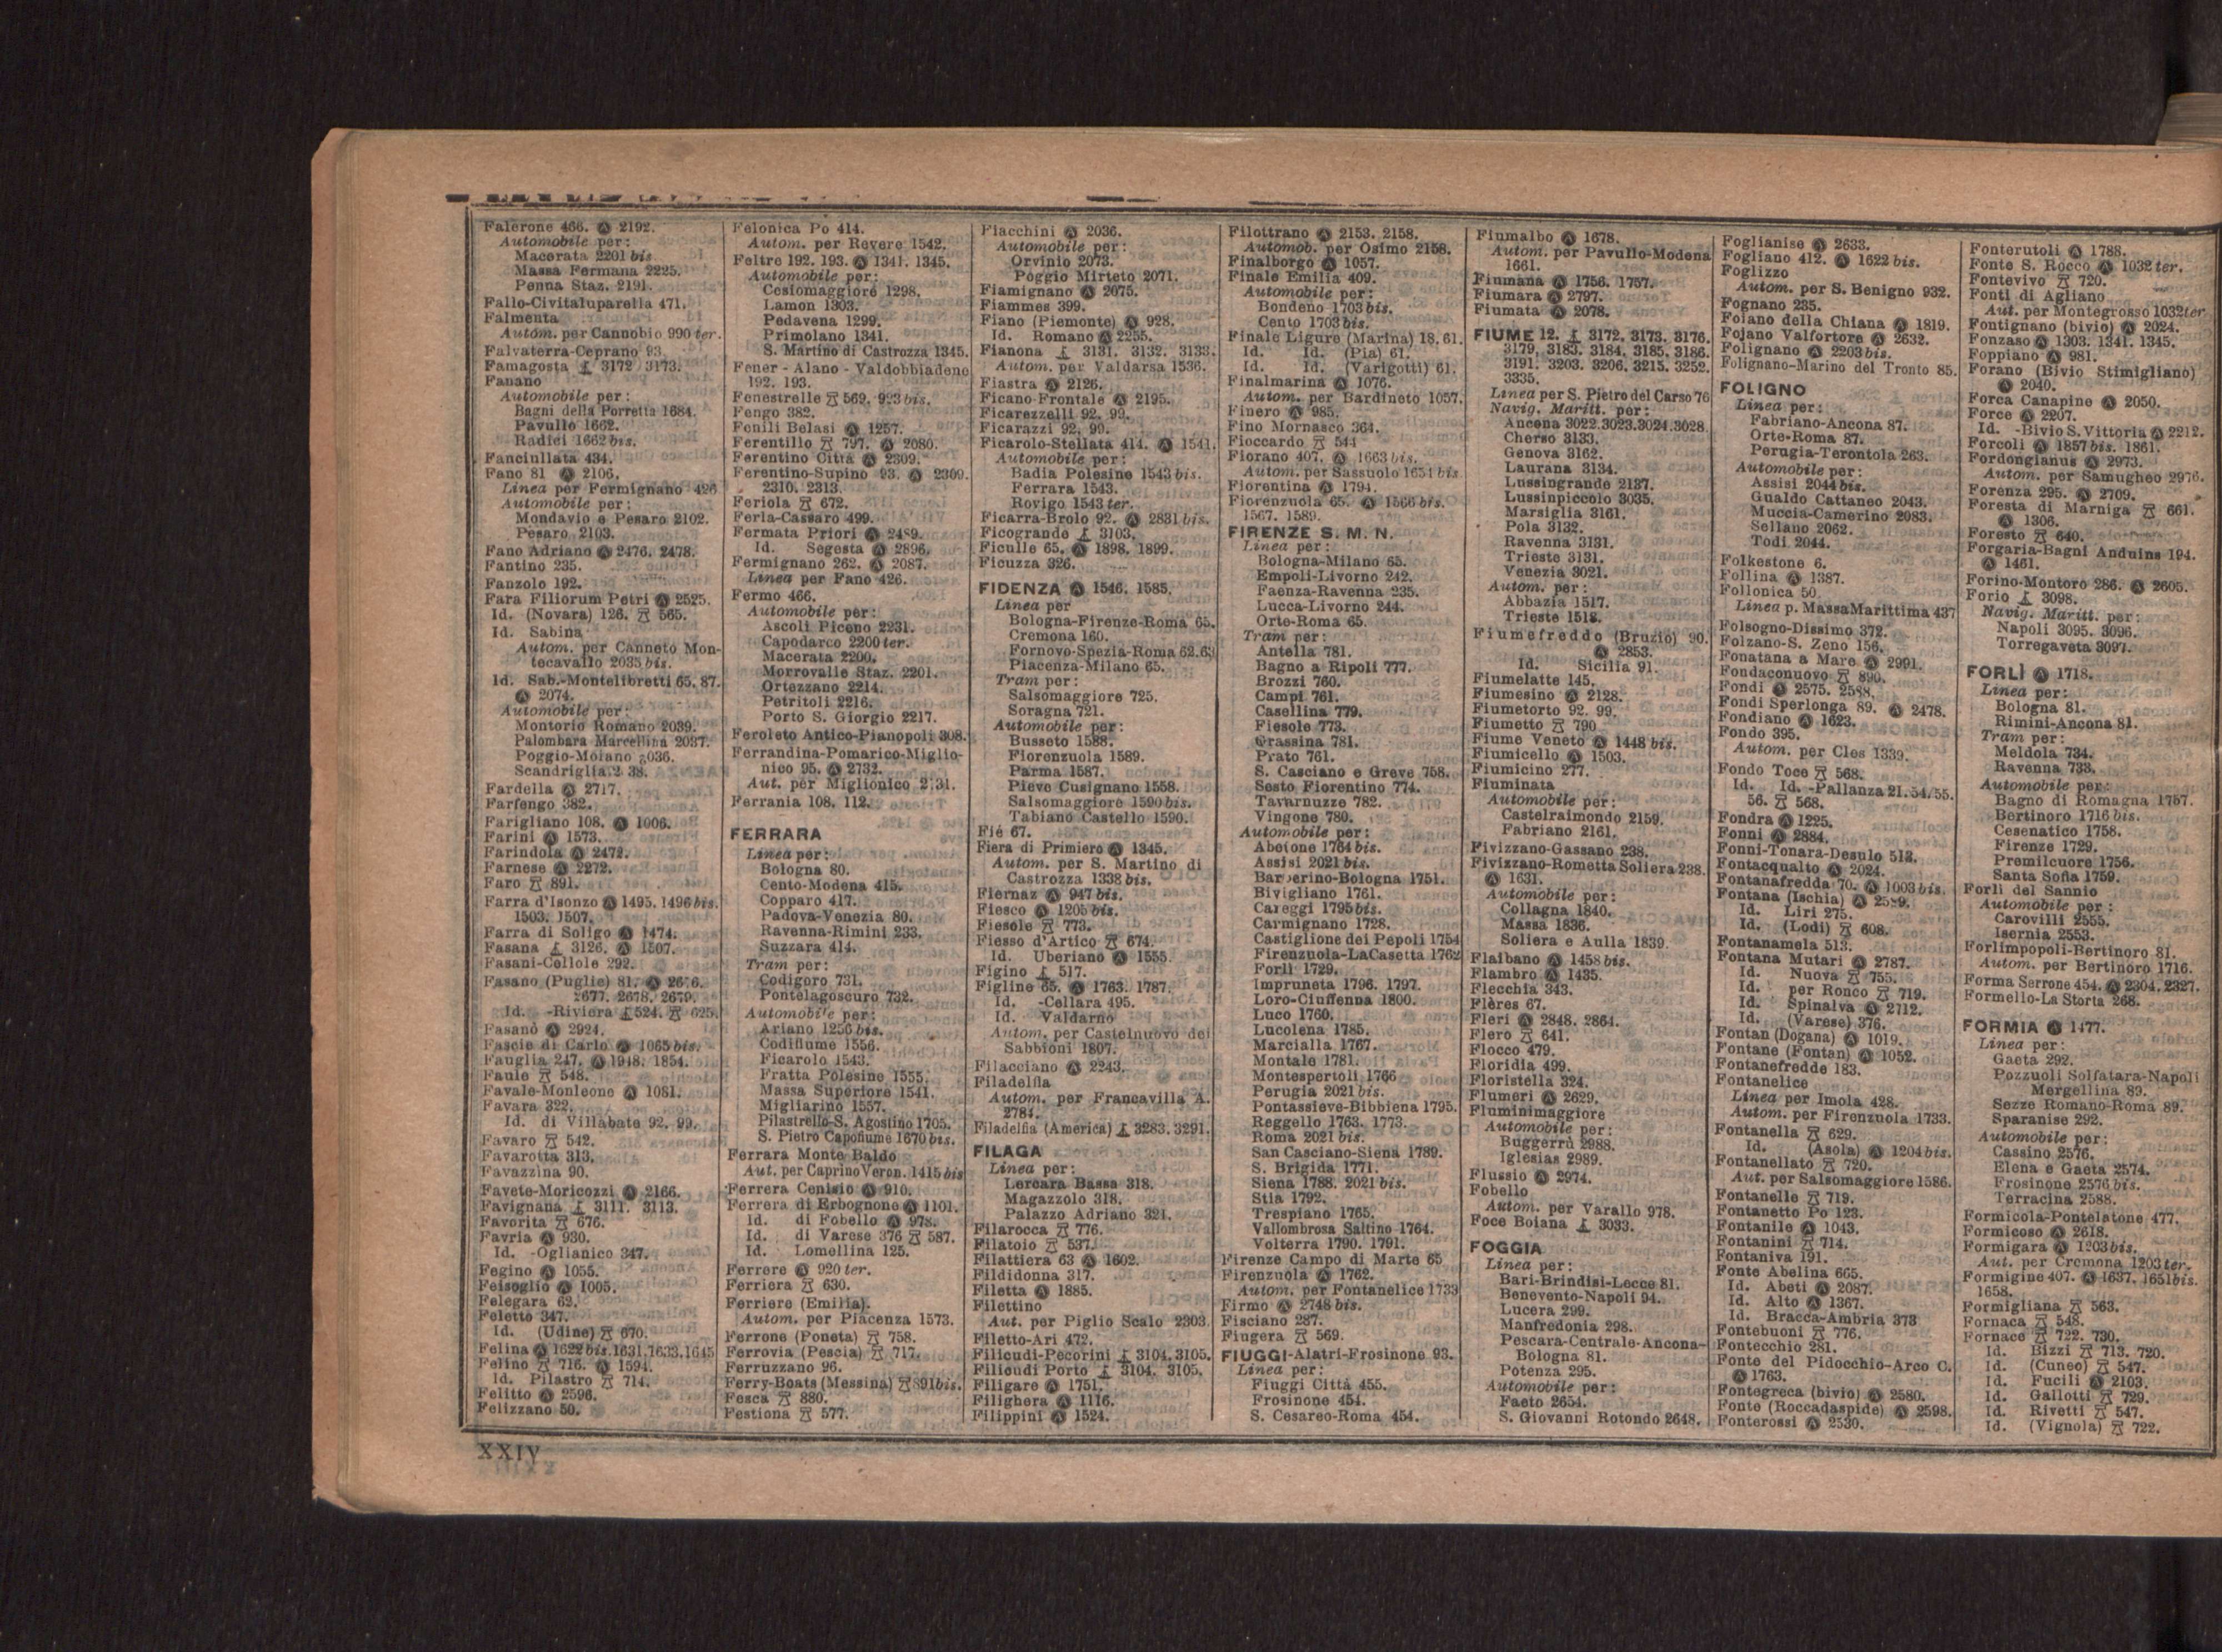 Falerone 466. Ⓐ 2192.
Automobile per:
Macerata 2201 bis
Massa Fermana 2225.
Penna Staz. 2191.
Fallo-Civitaluparella 471.
Falmenta
Autom. per Cannobio 990 ter.
Falvaterra-Ceprano 93.
Famagosta 3172 3173.
Fanano
Automobile per:
Bagni della Porretta 1684.
Pavullo 1662.
Radici 1662 bis.
Fanciullata 434.
Fano 81 Ⓐ 2106.
Linea per Fermignano 426
Automobile per:
Mondavio e Pesaro 2102.
Pesaro 2103.
Fano Adriano Ⓐ 2476. 2478.
Fantino 235.
Fanzolo 192.
Fara Filiorum Petri Ⓐ 2525.
Id. (Novara) 126. 565.
Id. Sabina
Autom. per Canneto Mon-
tecavallo 2035 bis.
Id. Sab.-Montelibretti 65. 87.
Ⓐ 2074.
Automobile per:
Montorio Romano 2039.
Palombara Marcellina 2037.
Poggio-Moiano 2036.
Scandriglia 2 38.
Fardella Ⓐ 2717.
Farfengo 382.
Farigliano 108. Ⓐ 1006.
Farini Ⓐ 1573.
Farindola Ⓐ 2472.
Farnese Ⓐ 2272.
Faro 891.
Farra d'Isonzo Ⓐ 1495. 1496 bis.
1503. 1507.
Farra di Soligo Ⓐ 1474.
Fasana 3126. Ⓐ 1507.
Fasani-Cellole 292.
Fasano (Puglie) 81. Ⓐ 2676.
2677. 2678. 2679.
Id. -Riviera 524. 625.
Fasanò Ⓐ 2924.
Fascie di Carlo Ⓐ 1065 bis.
Fauglia 247. Ⓐ 1948. 1854.
Faule 548.
Favale-Monleone Ⓐ 1081.
Favara 322.
Id. di Villabate 92. 99.
Favaro 542.
Favarotta 313.
Favazzina 90.
Favete-Moricozzi Ⓐ 2166.
Favignana 3111. 3113.
Favorita 676.
Favria Ⓐ 930.
Id. -Oglianico 347.
Fegino Ⓐ 1055.
Feisoglio Ⓐ 1005.
Felegara 62.
Feletto 347.
Id. (Udine) 670.
Felina Ⓐ 1622 bis.1631.1633.1645
Felino 716. Ⓐ 1594.
Id. Pilastro 714.
Felitto Ⓐ 2596.
Felizzano 50.
Felonica Po 414.
Autom. per Revere 1542.
Feltre 192. 193. Ⓐ 1341. 1345.
Automobile per:
Cesiomaggiore 1298.
Lamon 1303.
Pedavena 1299.
Primolano 1341.
S. Martino di Castrozza 1345.
Fener - Alano - Valdobbiadene
192. 193.
Fenestrelle 569. 923 bis.
Fengo 382.
Fenili Belasi Ⓐ 1257.
Ferentillo 797. Ⓐ 2080.
Ferentino Città Ⓐ 2309.
Ferentino-Supino 93. Ⓐ 2309.
2310. 2313.
Feriola 672.
Ferla-Cassaro 499.
Fermata Priori Ⓐ 2489.
Id. Segesta Ⓐ 2896.
Fermignano 262. Ⓐ 2087.
Linea per Fano 426.
Fermo 466.
Automobile per:
Ascoli Piceno 2231.
Capodarco 2200 ter.
Macerata 2200.
Morrovalle Staz. 2201.
Ortezzano 2214.
Petritoli 2216.
Porto S. Giorgio 2217.
Feroleto Antico-Pianopoli 308.
Ferrandina-Pomarico-Miglio-
nico 95. Ⓐ 2732.
Aut. per Miglionico 2731.
Ferrania 108. 112.
FERRARA
Linea per:
Bologna 80.
Cento-Modena 415.
Copparo 417.
Padova-Venezia 80.
Ravenna-Rimini 233.
Suzzara 414.
Tram per:
Codigoro 731.
Pontelagoscuro 732.
Automobile per:
Ariano 1256 bis.
Codifiume 1556.
Ficarolo 1543.
Fratta Polesine 1555.
Massa Superiore 1541.
Migliarino 1557.
Pilastrello-S. Agostino 1705.
S. Pietro Capofiume 1670 bis.
Ferrara Monte Baldo
Aut. per Caprino Veron. 1415 bis
Ferrera Cenisio Ⓐ 910.
Ferrera di Erbognone Ⓐ 1101.
Id. di Fobello Ⓐ 978.
Id. di Varese 376 587.
Id. Lomellina 125.
Ferrere Ⓐ 920 ter.
Ferriera 630.
Ferriere (Emilia).
Autom. per Piacenza 1573.
Ferrone (Poneta) 758.
Ferrovia (Pescia) 717.
Ferruzzano 96.
Ferry-Boats (Messina) 891 bis.
Fesca 880.
Festiona 577.
Fiacchini Ⓐ 2036.
Automobile per:
Orvinio 2073.
Poggio Mirteto 2071.
Fiamignano Ⓐ 2075.
Fiammes 399.
Fiano (Piemonte) Ⓐ 928.
Id. Romano Ⓐ 2255.
Fianona 3131. 3132. 3133.
Autom. per Valdarsa 1536.
Fiastra Ⓐ 2126.
Ficano-Frontale Ⓐ 2195.
Ficarezzelli 92. 99.
Ficarazzi 92. 99.
Ficarolo-Stellata 414. Ⓐ 1541.
Automobile per:
Badia Polesine 1543 bis.
Ferrara 1543.
Rovigo 1543 ter.
Ficarra-Brolo 92. Ⓐ 2831 bis.
Ficogrande 3103.
Ficulle 65. Ⓐ 1898. 1899.
Ficuzza 326.
FIDENZA Ⓐ 1546. 1585.
Linea per
Bologna-Firenze-Roma 65.
Cremona 160.
Fornovo-Spezia-Roma 62.63
Piacenza-Milano 65.
Tram per:
Salsomaggiore 725.
Soragna 721.
Automobile per:
Busseto 1588.
Fiorenzuola 1589.
Parma 1587.
Pieve Cusignano 1558.
Salsomaggiore 1590 bis.
Tabiano Castello 1590.
Fié 67.
Fiera di Primiero Ⓐ 1345.
Autom. per S. Martino di
Castrozza 1338 bis.
Fiernaz Ⓐ 947 bis.
Fiesco Ⓐ 1205 bis.
Fiesole 773.
Fiesso d'Artico 674.
Id. Uberiano Ⓐ 1555.
Figino 517.
Figline 65. Ⓐ 1763. 1787.
Id. -Cellara 495.
Id. Valdarno
Autom. per Castelnuovo dei
Sabbioni 1807.
Filacciano Ⓐ 2243.
Filadelfia
Autom. per Francavilla A.
2784.
Filadelfia (America) 3283. 3291.
FILAGA
Linea per:
Lercara Bassa 318.
Magazzolo 318.
Palazzo Adriano 321.
Filarocca 776.
Filatoio 537.
Filattiera 63 Ⓐ 1602.
Fildidonna 317.
Filetta Ⓐ 1885.
Filettino
Aut. per Piglio Scalo 2303.
Filetto-Ari 472.
Filicudi-Pecorini 3104. 3105.
Filicudi Porto 3104. 3105.
Filigare Ⓐ 1751.
Filighera Ⓐ 1116.
Filippini Ⓐ 1524.
Filottrano Ⓐ 2153. 2158.
Automob. per Osimo 2158.
Finalborgo Ⓐ 1057.
Finale Emilia 409.
Automobile per:
Bondeno 1703 bis.
Cento 1703 bis.
Finale Ligure (Marina) 18. 61.
Id. Id. (Pia) 61.
Id. Id. (Varigotti) 61.
Finalmarina Ⓐ 1076.
Autom. per Bardineto 1057.
Finero Ⓐ 985.
Fino Mornasco 364.
Fioccardo 544
Fiorano 407. Ⓐ 1663 bis.
Autom. per Sassuolo 1651 bis
Fiorentina Ⓐ 1794.
Fiorenzuola 65. Ⓐ 1566 bis.
1567. 1589.
FIRENZE S. M. N.
Linea per:
Bologna-Milano 65.
Empoli-Livorno 242.
Faenza-Ravenna 235.
Lucca-Livorno 244.
Orte-Roma 65.
Tram per:
Antella 781.
Bagno a Ripoli 777.
Brozzi 760.
Campi 761.
Casellina 779.
Fiesole 773.
Grassina 781.
Prato 761.
S. Casciano e Greve 758.
Sesto Fiorentino 774.
Tavarnuzze 782.
Vingone 780.
Automobile per:
Abetone 1764 bis.
Assisi 2021 bis.
Barberino-Bologna 1751.
Bivigliano 1761.
Careggi 1795 bis.
Carmignano 1728.
Castiglione dei Pepoli 1754
Firenzuola-La Casetta 1762
Forlì 1729.
Impruneta 1796. 1797.
Loro-Ciuffenna 1800.
Luco 1760.
Lucolena 1785.
Marcialla 1767.
Montale 1781.
Montespertoli 1766
Perugia 2021 bis.
Pontassieve-Bibbiena 1795.
Reggello 1763. 1773.
Roma 2021 bis.
San Casciano-Siena 1789.
S. Brigida 1771.
Siena 1788. 2021 bis.
Stia 1792.
Trespiano 1765.
Vallombrosa Saltino 1764.
Volterra 1790. 1791.
Firenze Campo di Marte 65
Firenzuola Ⓐ 1762.
Autom. per Fontanelice 1733
Firmo Ⓐ 2748 bis.
Fisciano 287.
Fiugera 569.
FIUGGI-Alatri-Frosinone 93.
Linea per:
Fiuggi Città 455.
Frosinone 454.
S. Cesareo-Roma 454.
Fiumalbo Ⓐ 1678.
Autom. per Pavullo-Modena
1661.
Fiumana Ⓐ 1756. 1757.
Fiumara Ⓐ 2797.
Fiumata Ⓐ 2078.
FIUME 12. 3172. 3173. 3176.
3179. 3183. 3184. 3185. 3186.
3191. 3203. 3206. 3215. 3252.
3335.
Linea per S. Pietro del Carso 76
Navig. Maritt. per:
Ancona 3022.3023.3024.3028.
Cherso 3133.
Genova 3162.
Laurana 3134.
Lussingrande 2137.
Lussinpiccolo 3035.
Marsiglia 3161.
Pola 3132.
Ravenna 3131.
Trieste 3131.
Venezia 3021.
Autom. per:
Abbazia 1517.
Trieste 1518.
Fiumefreddo (Bruzio) 90.
Ⓐ 2853.
Id. Sicilia 91.
Fiumelatte 145.
Fiumesino Ⓐ 2128.
Fiumetorto 92. 99.
Fiumetto 790
Fiume Veneto Ⓐ 1448 bis.
Fiumicello Ⓐ 1503.
Fiumicino 277.
Fiuminata
Automobile per:
Castelraimondo 2159.
Fabriano 2161.
Fivizzano-Gassano 238.
Fivizzano-Rometta Soliera 238.
Ⓐ 1631.
Automobile per:
Collagna 1840.
Massa 1836.
Soliera e Aulla 1839.
Flaibano Ⓐ 1458 bis.
Flambro Ⓐ 1435.
Flecchia 343.
Flères 67.
Fleri Ⓐ 2848. 2864.
Flero 641.
Flocco 479.
Floridia 499.
Floristella 324.
Flumeri Ⓐ 2629.
Fluminimaggiore
Automobile per:
Buggerru 2988.
Iglesias 2989.
Flussio Ⓐ 2974.
Fobello
Autom. per Varallo 978.
Foce Boiana 3033.
FOGGIA
Linea per:
Bari-Brindisi-Lecce 81.
Benevento-Napoli 94.
Lucera 299.
Manfredonia 298.
Pescara-Centrale-Ancona-
Bologna 81.
Potenza 295.
Automobile per:
Faeto 2654.
S. Giovanni Rotondo 2648.
Foglianise Ⓐ 2633.
Fogliano 412. Ⓐ 1622 bis.
Foglizzo
Autom. per S. Benigno 932.
Fognano 235.
Foiano della Chiana Ⓐ 1819.
Fojano Valfortore Ⓐ 2632.
Folignano Ⓐ 2203 bis.
Folignano-Marino del Tronto 85.
FOLIGNO
Linea per:
Fabriano-Ancona 87.
Orte-Roma 87.
Perugia-Terontola 263.
Automobile per:
Assisi 2044 bis.
Gualdo Cattaneo 2043.
Muccia-Camerino 2083.
Sellano 2062.
Todi 2044.
Folkestone 6.
Follina Ⓐ 1387.
Follonica 50.
Linea p. Massa Marittima 437
Folsogno-Dissimo 372.
Folzano-S. Zeno 156.
Fonatana a Mare Ⓐ 2991.
Fondaconuovo 890.
Fondi Ⓐ 2575. 2588.
Fondi Sperlonga 89. Ⓐ 2478.
Fondiano Ⓐ 1623.
Fondo 395.
Autom. per Cles 1339.
Fondo Toce 568.
Id. Id. -Pallanza 21. 54. 55.
56. 568.
Fondra Ⓐ 1225.
Fonni Ⓐ 2884.
Fonni-Tonara-Desulo 512.
Fontacqualto Ⓐ 2024.
Fontanafredda 70. Ⓐ 1003 bis.
Fontana (Ischia) Ⓐ 2589.
Id. Liri 275.
Id. (Lodi) 608.
Fontanamela 513.
Fontana Mutari Ⓐ 2787.
Id. Nuova 755.
Id. per Ronco 719.
Id. Spinalva Ⓐ 2712.
Id. (Varese) 376.
Fontan (Dogana) Ⓐ 1019.
Fontane (Fontan) Ⓐ 1052.
Fontanefredde 183.
Fontanelice
Linea per Imola 428.
Autom. per Firenzuola 1733.
Fontanella 629.
Id. (Asola) Ⓐ 1204 bis.
Fontanellato 720.
Aut. per Salsomaggiore 1586.
Fontanelle 719.
Fontanetto Po 123.
Fontanile Ⓐ 1043.
Fontanini 714.
Fontaniva 191.
Fonte Abelina 665.
Id. Abeti Ⓐ 2087.
Id. Alto Ⓐ 1367.
Id. Bracca-Ambria 373
Fontebuoni 776.
Fontecchio 281.
Fonte del Pidocchio-Arco C.
Ⓐ 1763.
Fontegreca (bivio) Ⓐ 2580.
Fonte (Roccadaspide) Ⓐ 2598.
Fonterossi Ⓐ 2530.
Fonterutoli Ⓐ 1788.
Fonte S. Rocco Ⓐ 1032 ter.
Fontevivo 720.
Fonti di Agliano
Aut. per Montegrosso 1032 ter
Fontignano (bivio) Ⓐ 2024.
Fonzaso Ⓐ 1303. 1341. 1345.
Foppiano Ⓐ 981.
Forano (Bivio Stimigliano)
Ⓐ 2040.
Forca Canapine Ⓐ 2050.
Force Ⓐ 2207.
Id. -Bivio S. Vittoria Ⓐ 2212.
Forcoli Ⓐ 1857 bis. 1861.
Fordongianus Ⓐ 2973.
Autom. per Samugheo 2976.
Forenza 295. Ⓐ 2709.
Foresta di Marniga 661.
Ⓐ 1306.
Foresto 640.
Forgaria-Bagni Anduins 194.
Ⓐ 1461.
Forino-Montoro 286. Ⓐ 2605.
Forio 3098.
Navig. Maritt. per:
Napoli 3095. 3096.
Torregaveta 3097.
FORLÌ Ⓐ 1718.
Linea per:
Bologna 81.
Rimini-Ancona 81.
Tram per:
Meldola 734.
Ravenna 733.
Automobile per:
Bagno di Romagna 1757.
Bertinoro 1716 bis.
Cesenatico 1758.
Firenze 1729.
Premilcuore 1756.
Santa Sofia 1759.
Forli del Sannio
Automobile per:
Carovilli 2555.
Isernia 2553.
Forlimpopoli-Bertinoro 81.
Autom. per Bertinoro 1716.
Forma Serrone 454. Ⓐ 2304. 2327.
Formello-La Storta 268.
FORMIA Ⓐ 1477.
Linea per:
Gaeta 292.
Pozzuoli Solfatara-Napoli
Mergellina 89.
Sezze Romano-Roma 89.
Sparanise 292.
Automobile per:
Cassino 2576.
Elena e Gaeta 2574.
Frosinone 2576 bis.
Terracina 2588.
Formicola-Pontelatone 477.
Formicoso Ⓐ 2618.
Formigara Ⓐ 1203 bis.
Aut. per Cremona 1203 ter.
Formigine 407. Ⓐ 1637. 1651 bis.
1658.
Formigliana 563.
Fornaca 548.
Fornace 722. 730.
Id. Bizzi 713. 720.
Id. (Cuneo) 547.
Id. Fucili Ⓐ 2103.
Id. Gallotti 729.
Id. Rivetti 547.
Id. (Vignola) 722.
XXIV